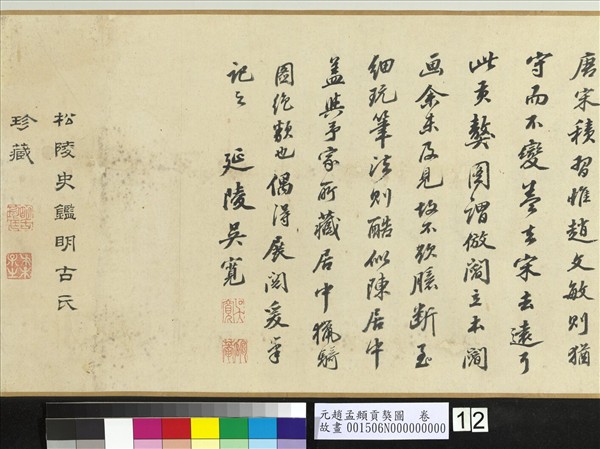 唐宋積習惟趙文敏則猶
守而不變蓋去宋未遠耳
此貢獒圖謂倣閻立本閻
画余未及見故不敢臆斷至
細玩筆法則酷似陳居中
蓋與予家所藏居中獵騎
圖絶類也偶得展閱爰筆
記之 延陵吳寬
松陵史鑑明古氏
珍藏
元趙孟頫貢獒圖 卷
故畫 001506N000000000
12